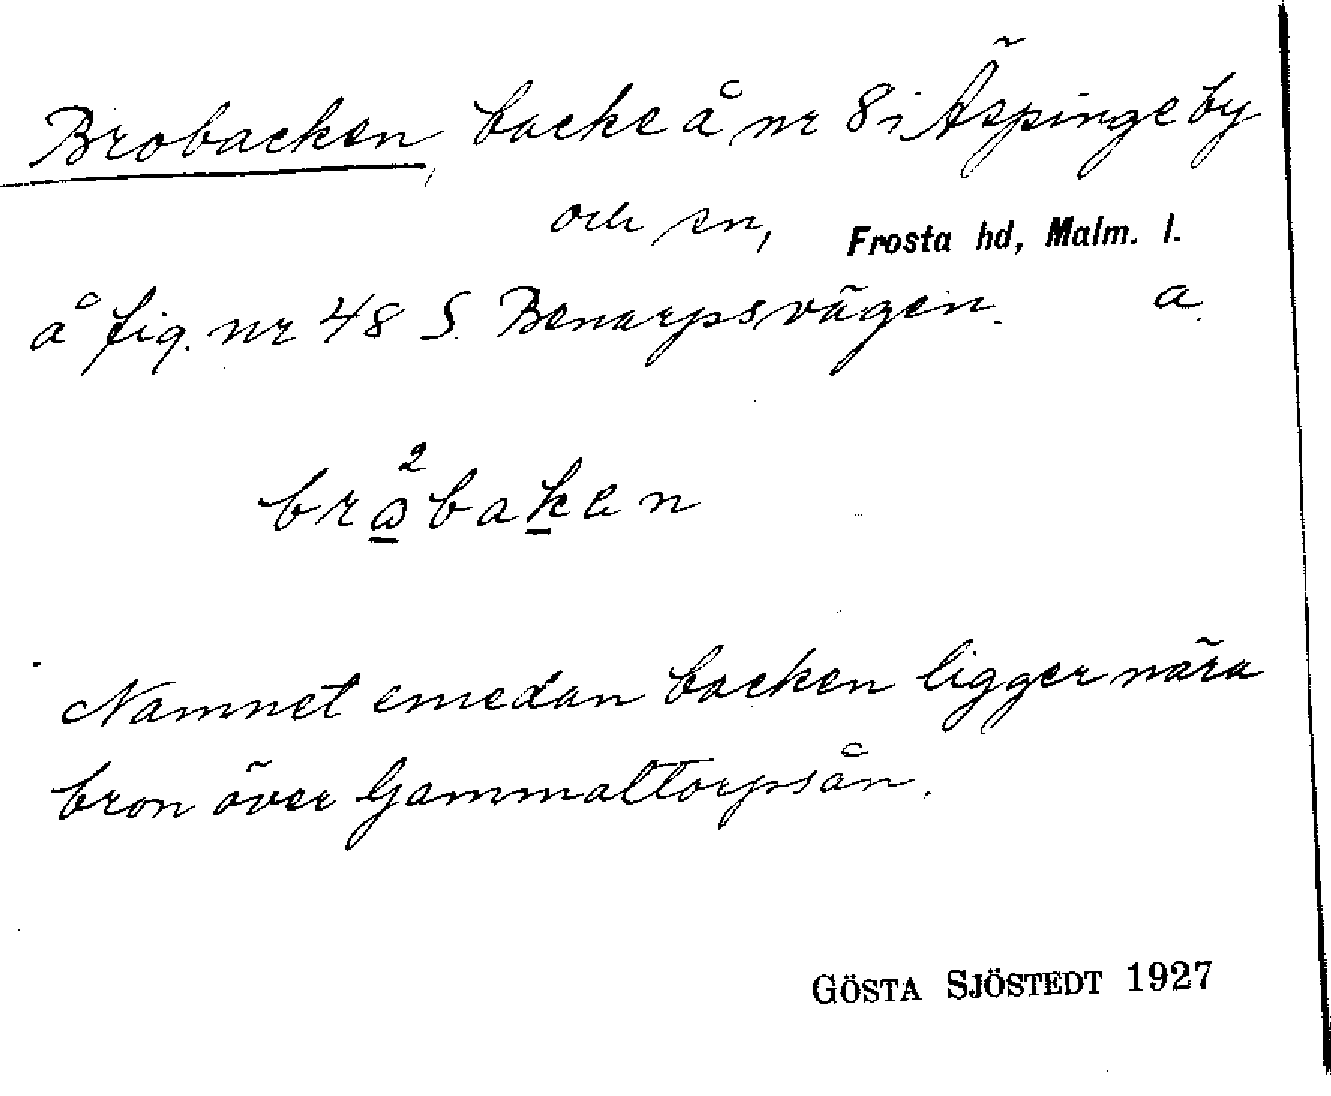 Brobacken, backe å nr 8 i Äspinge by
och sn, Frosta hd, Malm. l.
å fig. nr 48 S. Benarpsvägen. a.
bra²baken
Namnet emedan backen ligger nära
bron över Gammaltorpsån.
GÖSTA SJÖSTEDT 1927